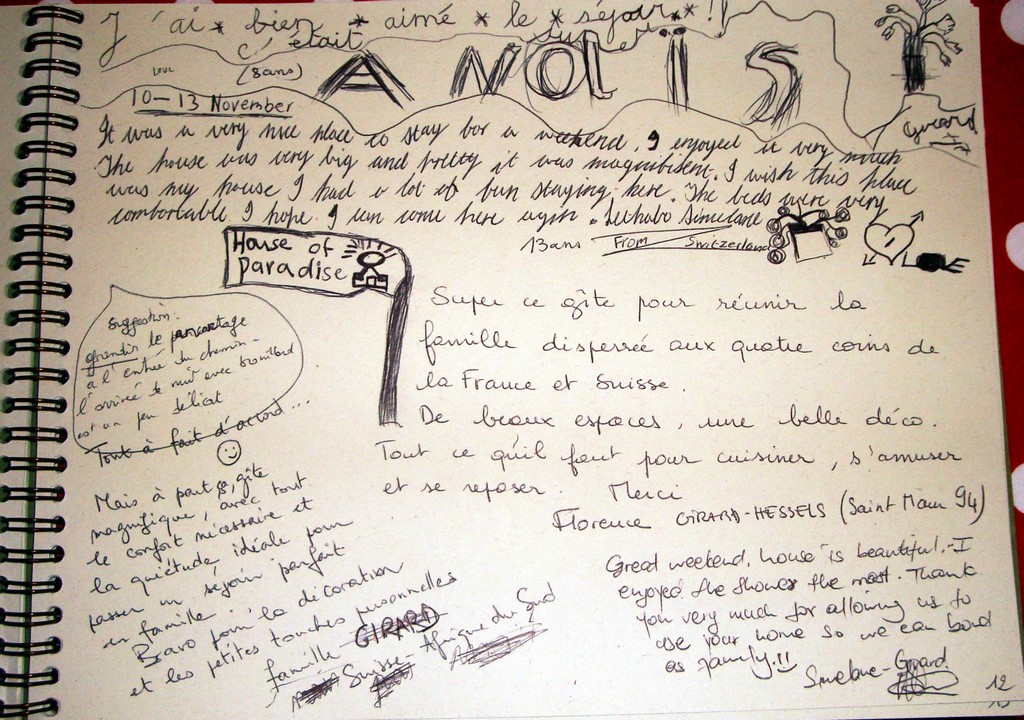 J'ai * bien * aimé * le * séjour * !
c'était super
(8ans) ANAÏS
10-13 November
Girard
It was a very nice place to stay for a weekend, I enjoyed it very much
The house was very big and pretty it was magnifisent. I wish this place
was my house I had a lot of fun staying here. The beds were very
comfortable I hope I can come here again.
13ans From Switzerland
House of
Paradise
Suggestion:
agrandir le
à l'entrée du chemin-
l'arrivée de nuit avec brouillard
est un peu délicat
Tout à fait d'accord...
Super ce gîte pour réunir la
famille dispersée aux quatre coins de
la France et Suisse.
De beaux espaces, une belle déco.
Tout ce qu'il faut pour cuisiner, s'amuser
et se reposer. Merci
Florence GIRARD-HESSELS (Saint Maur 94)
Mais à part ça, gîte
magnifique, avec tout
le confort nécessaire et
la quiétude, idéale pour
passer un séjour parfait
en famille.
Bravo pour la décoration
et les petites touches personnelles
famille GIRARD
Suisse- Afrique du Sud
Great weekend, house is beautiful,-I
enjoyed the shower the most. Thank
you very much for allowing us to
use your home so we can bond
as family!!
Girard
12